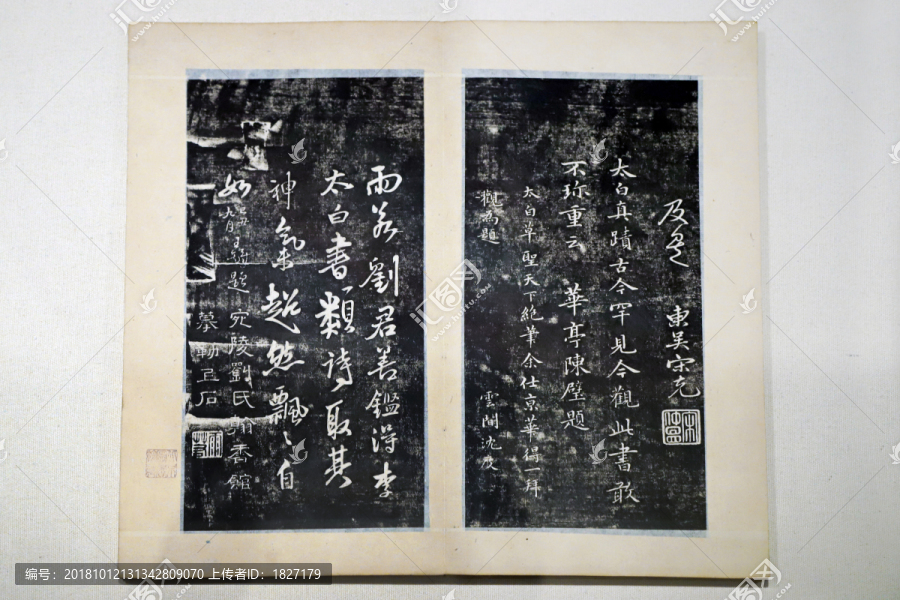 及⿱
東吳宋克
太白真蹟古今罕見今觀此書敢
不珎重云 華亭陳璧題
太白草聖天下絶筆余仕京華得一拜
觀為題 雲間沈度
雨若劉君善鑑得李
太白書類詩取其
神氣超然飄々自
如
九月
題
宛陵劉氏
香館
摹勒上石
汇图网
编号：20181012131342809070 上传者ID：1827179